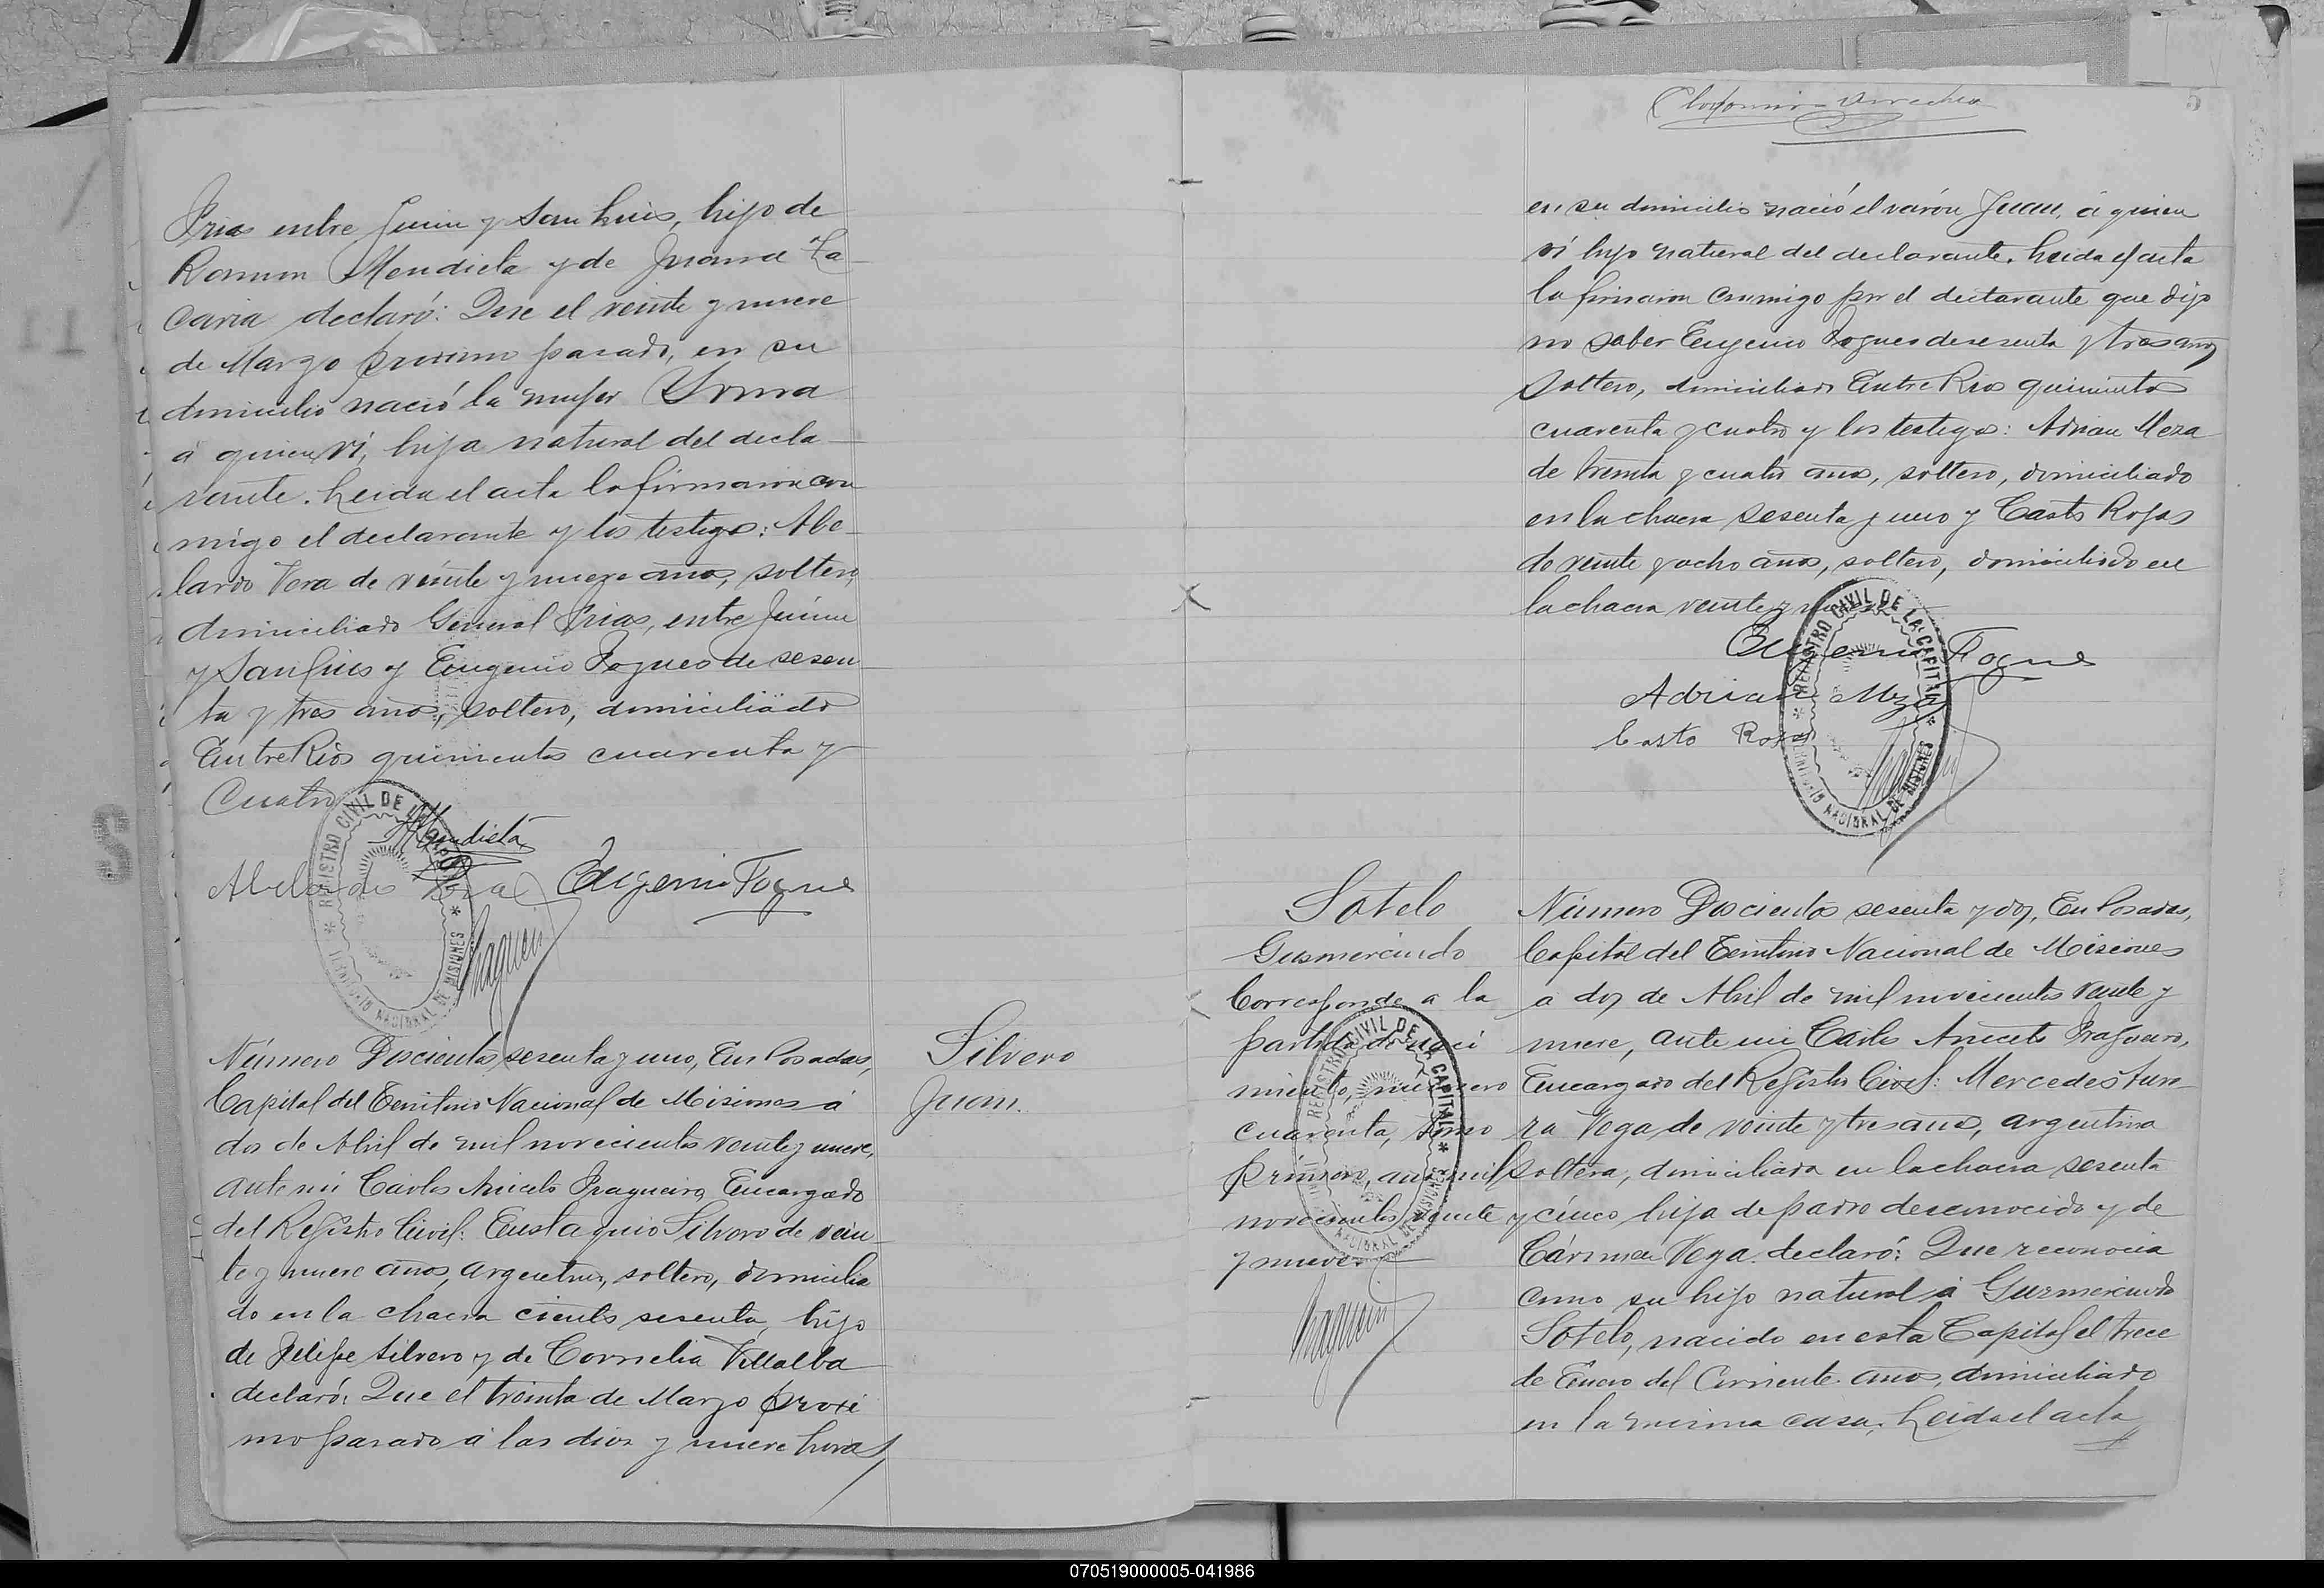 Frias entre Junin y San Luis, hijo de
Ramon Mendieta y de Juana Za
caria declaró: Que el veinte y nueve
de Marzo próximo pasado, en su
domicilio nació la mujer
á quien ví, hija natural del decla-
rante. Leida el acta la firmaron con
migo el declarante y los testigos: Abe-
lardo Vera de veinte y nueve años, soltero,
domiciliado General Frias, entre Junin
y San Luis y Eugenio Fogues de sesen
ta y tres años, soltero, domiciliado
Entre Rios quinientos cuarenta y
Cuatro
Mendieta
Abelardo Vera Eugenio Fogues
REGISTRO CIVIL DE LA CAPITAL * NACIONAL DE MISIONES *
Número Doscientos sesenta y uno, En Posadas,
Capital del Territorio Nacional de Misiones á
dos de Abril de mil novecientos veinte y nueve,
ante mi Carlos Aniceto Fragueiro, Encargado
del Registro Civil: Eustaquio Silvero de vein
te y nueve años, argentino, soltero, domicilia
do en la chacra ciento sesenta, hijo
de Felipe Silvero y de Cornelia Villalba
declaró: Que el treinta de Marzo próxi
mo pasado á las diez y nueve horas,
Silvero
Juan.
5
en su domicilio nació el varón Juan, á quien
ví hijo natural del declarante. Leida el acta
la firmaron conmigo por el declarante que dijo
no saber Eugenio Fogues de sesenta y tres años
soltero, domiciliado Entre Rios quinientos
cuarenta y cuatro y los testigos: Adrian Meza
de treinta y cuatro años, soltero, domiciliado
en la chacra sesenta y uno y Casto Rojas
de veinte y ocho años, soltero, domiciliado en
la chacra veinte y
Eugenio Fogues
Adrian Meza
Casto Rojas
REGISTRO CIVIL DE LA CAPITAL * NACIONAL DE MISIONES *
Sotelo
Gusmercindo
Corresponde a la
partida de naci
miento, numero
cuarenta, tomo
primero, año mil
novecientos veinte
y nueve.
REGISTRO CIVIL DE LA CAPITAL * NACIONAL DE MISIONES
Número Doscientos sesenta y dos, En Posadas,
Capital del Territorio Nacional de Misiones
a dos de Abril de mil novecientos veinte y
nueve, ante mi Carlos Aniceto Fragueiro,
Encargado del Registro Civil: Mercedes Auro
ra Vega de veinte y tres años, argentina
soltera, domiciliada en la chacra sesenta
y cinco hija de padre desconocido y de
Cármen Vega. declaró: Que reconocia
como su hijo natural á Gusmercindo
Sotelo, nacido en esta Capital el trece
de Enero del Corriente año, domiciliado
en la misma casa. Leida el acta
070519000005-041986